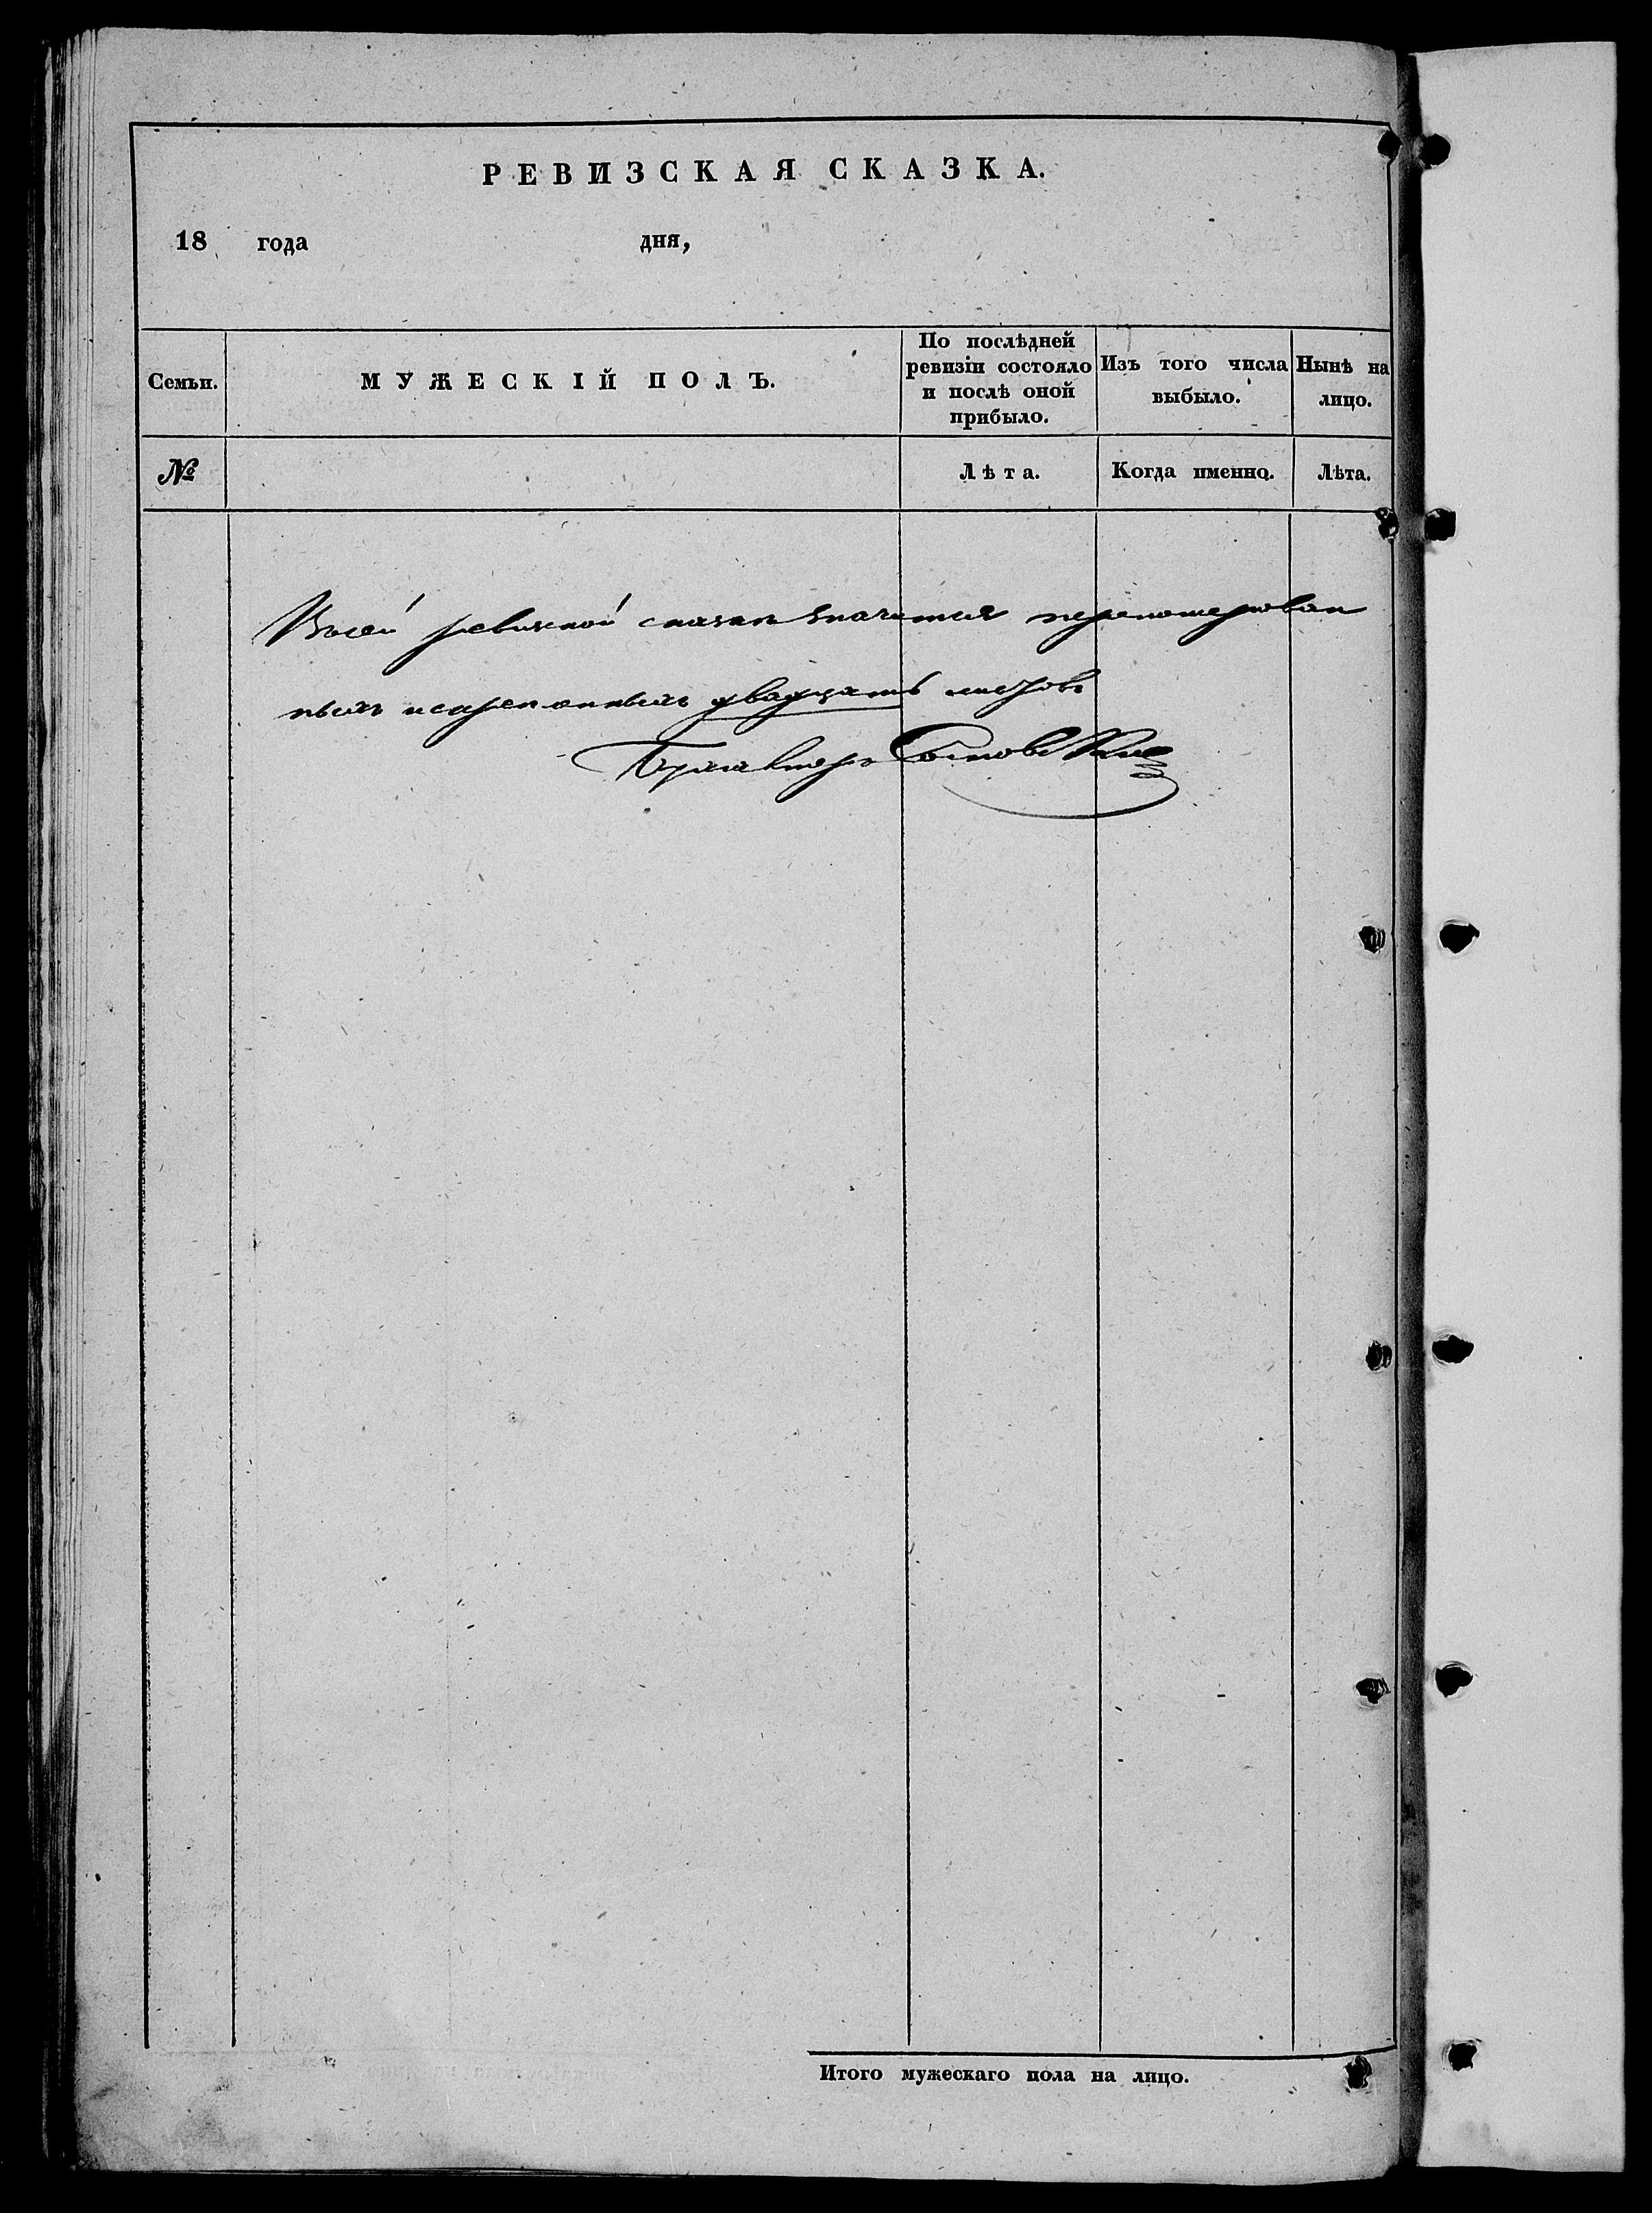 РЕВИЗСКАЯ СКАЗКА.
18 года дня,
Семьи.
МУЖЕСКІЙ ПОЛЪ.
По послѣдней
ревизіи состояло
и послѣ оной
прибыло.
Изъ того числа
выбыло.
Нынѣ на
лицо.
№
Лѣта.
Когда именно.
Лѣта.
Въсей ревизской сказке значится перенумерован
ныхъ искрепленныхъ двадцать листовъ
Итого мужескаго пола на лицо.